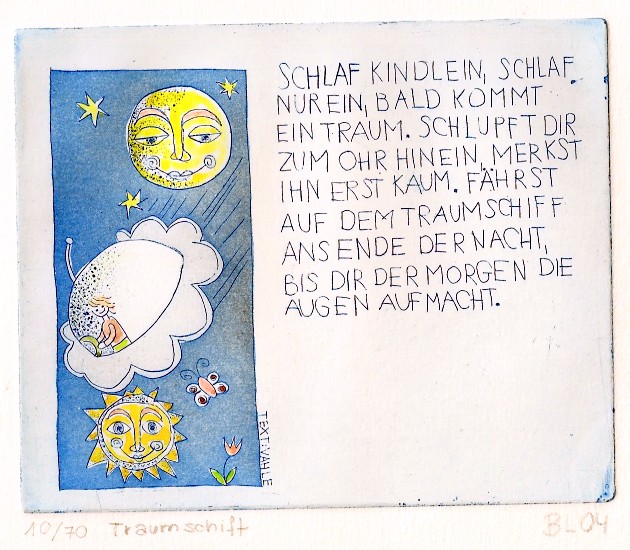 SCHLAF KINDLEIN, SCHLAF
NUR EIN, BALD KOMMT
EIN TRAUM. SCHLUPFT DIR
ZUM OHR HINEIN, MERKST
IHN ERST KAUM. FÄHRST
AUF DEM TRAUMSCHIFF
ANS ENDE DER NACHT,
BIS DIR DER MORGEN DIE
AUGEN AUFMACHT.
TEXT: VAHLE
10/70 Traumschiff
BL04